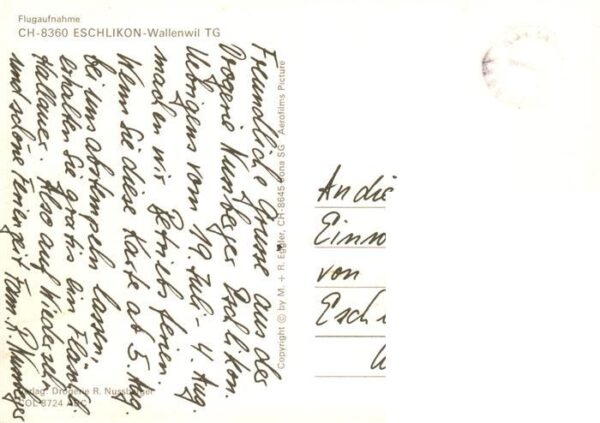 Flugaufnahme
CH-8360 ESCHLIKON-Wallenwil TG
Freundliche Grüsse aus der
Drogerie Nussberger Eschlikon.
Uebrigens vom 19. Juli - 4. Aug.
machen wir Betriebsferien.
Wenn Sie diese Karte ab 5. Aug.
bei uns abstempeln lassen,
erhalten Sie gratis ein Fläschli
Hallauer. Also auf Wiedersehn
und schöne Ferienzeit Fam. R. Nussberger
Copyright © by M. + R. Eggler, CH-8645 Jona SG Aerofilms Picture
An die
Einwo
von
Eschl
Verlag: Drogerie R. Nussberger
COL 8724